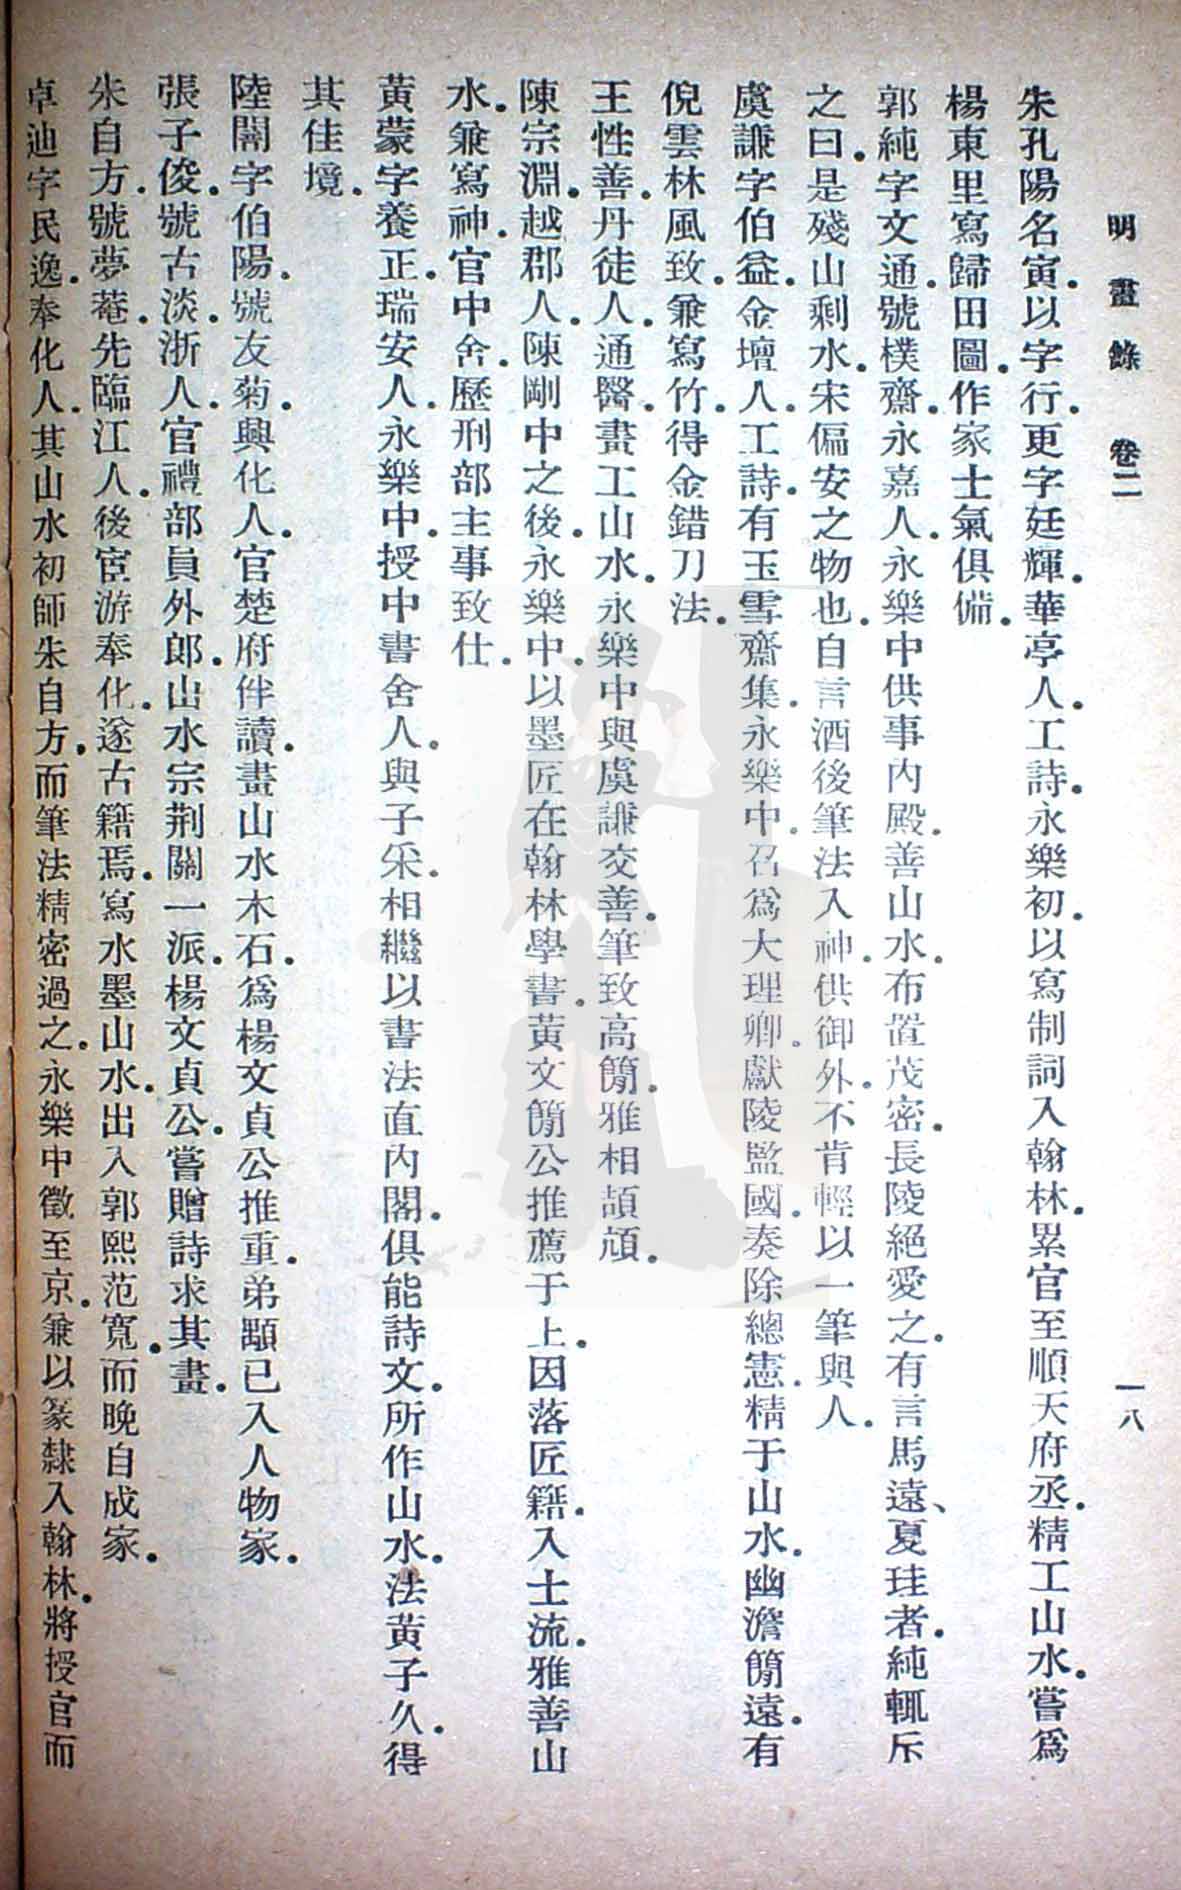 明畫錄　卷二　一八
朱孔陽名寅．以字行．更字廷輝．華亭人．工詩．永樂初．以寫制詞入翰林．累官至順天府丞．精工山水．嘗爲
楊東里寫歸田圖．作家士氣俱備．
郭純字文通．號樸齋．永嘉人．永樂中供事內殿．善山水．布置茂密．長陵絕愛之．有言馬遠、夏珪者．純輒斥
之曰．是殘山剩水．宋偏安之物也．自言酒後筆法入神．供御外．不肯輕以一筆與人．
虞謙字伯益．金壇人．工詩．有玉雪齋集．永樂中．召爲大理卿．獻陵監國．奏除總憲．精于山水．幽澹簡遠．有
倪雲林風致．兼寫竹．得金錯刀法．
王性善．丹徒人．通醫．畫工山水．永樂中與虞謙交善．筆致高簡．雅相頡頏．
陳宗淵．越郡人．陳剛中之後．永樂中．以墨匠在翰林學書．黃文簡公推薦于上．因落匠籍．入士流．雅善山
水．兼寫神．官中舍．歷刑部主事致仕．
黃蒙字養正．瑞安人．永樂中．授中書舍人．與子采．相繼以書法直內閣．俱能詩文．所作山水．法黃子久．得
其佳境．
陸闇字伯陽．號友菊．興化人．官楚府伴讀．畫山水木石．爲楊文貞公推重．弟顒已入人物家．
張子俊．號古淡．浙人．官禮部員外郎．山水宗荆關一派．楊文貞公．嘗贈詩求其畫．
朱自方．號夢菴．先臨江人．後宦游奉化．遂古籍焉．寫水墨山水．出入郭熙范寬．而晚自成家．
卓迪字民逸．奉化人．其山水初師朱自方．而筆法精密過之．永樂中徵至京．兼以篆隸入翰林．將授官而